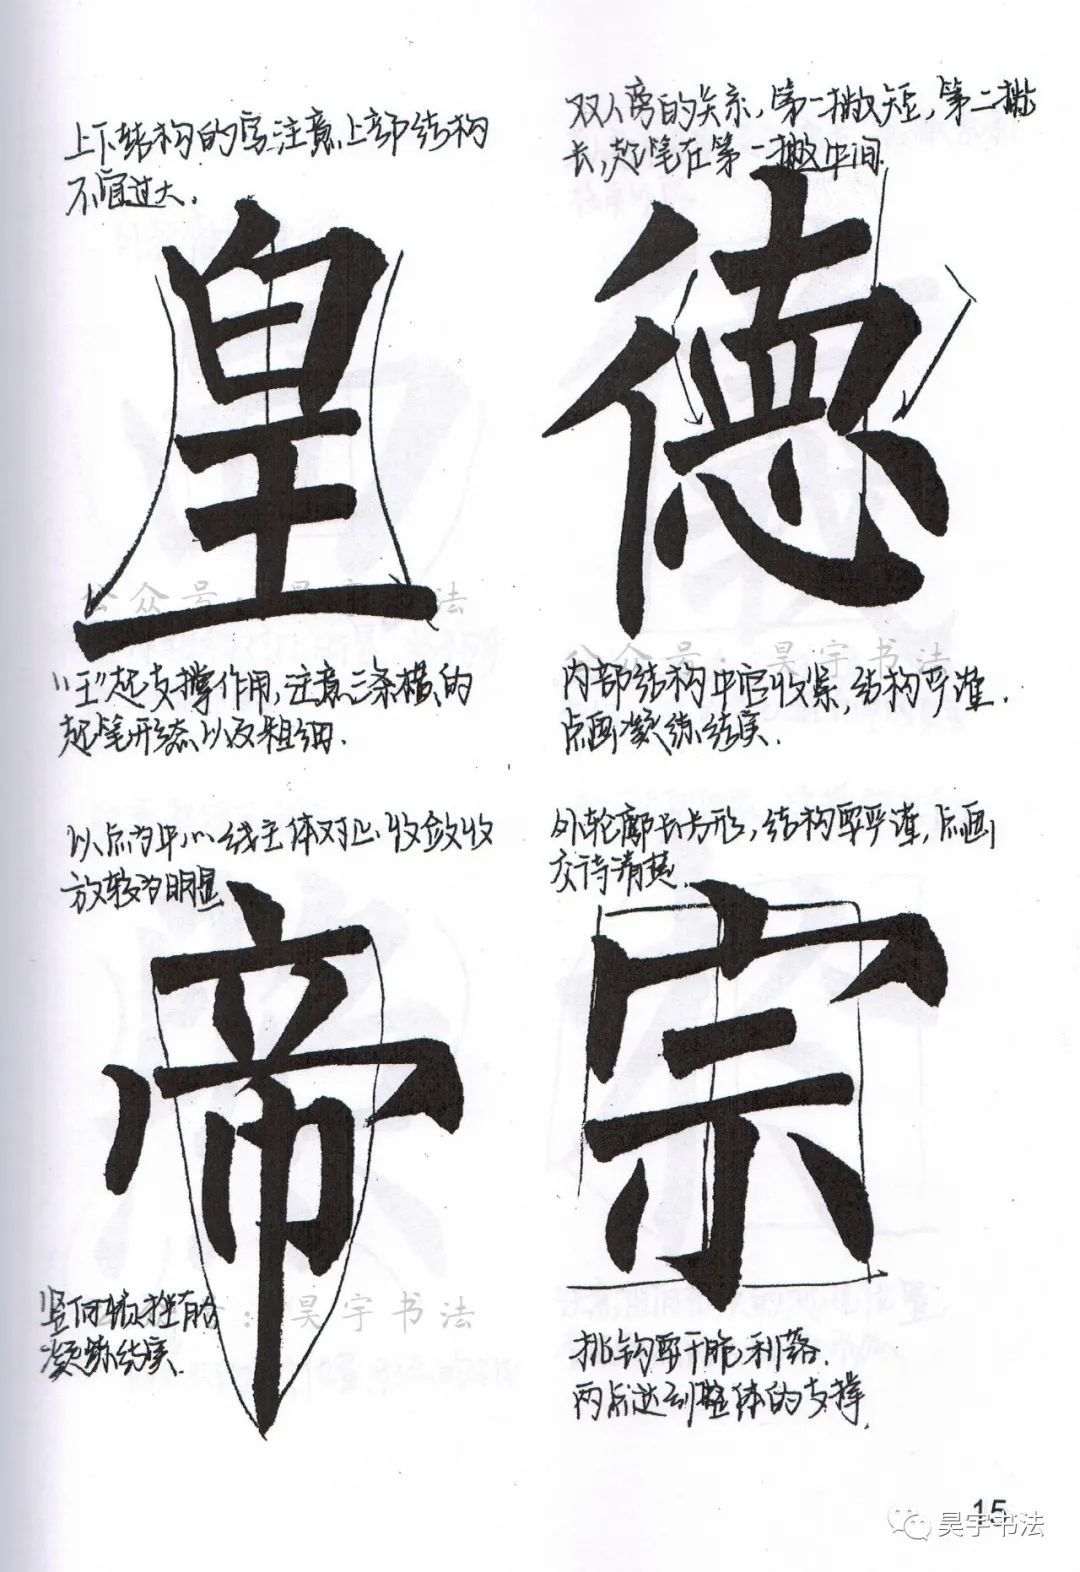 上下结构的字注意上部结构
不宜过大.
皇
公众号：昊宇书法
"王"起支撑作用,注意三条横的
起笔形态以及粗细.
双人旁的关系,第一撇短,第二撇
长,起笔在第一撇中间.
德
公众号：昊宇书法
内部结构中宫收紧,结构严谨.
点画凝练结实.
以点为中心线主体对正,收敛收
放较为明显
帝
公众号：昊宇书法
竖向挺拔有力
凝练结实.
外轮廓长方形,结构要严谨,点画
交待清楚.
宗
挑钩要干脆利落.
两点达到整体的支撑.
15
昊宇书法